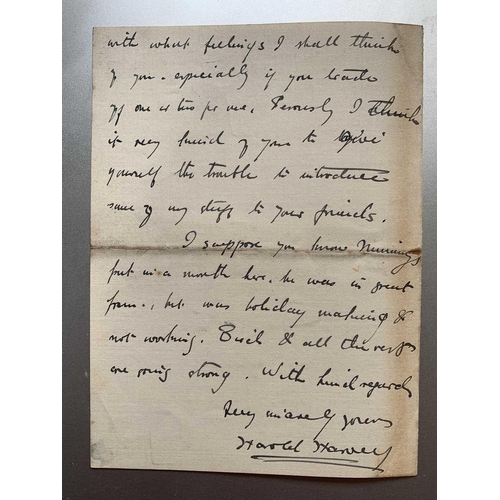 with what feelings I shall think
of you - especially if you trade
off one or two for me. Seriously I think
it very kind of you to give
yourself the trouble to introduce
some of my stuff to your friends.
I suppose you know Munnings
put in a month here. he was in great
form, but was holiday making &
not working. & all the rest
are going strong. With kind regards
Very sincerely yours
Harold Harvey